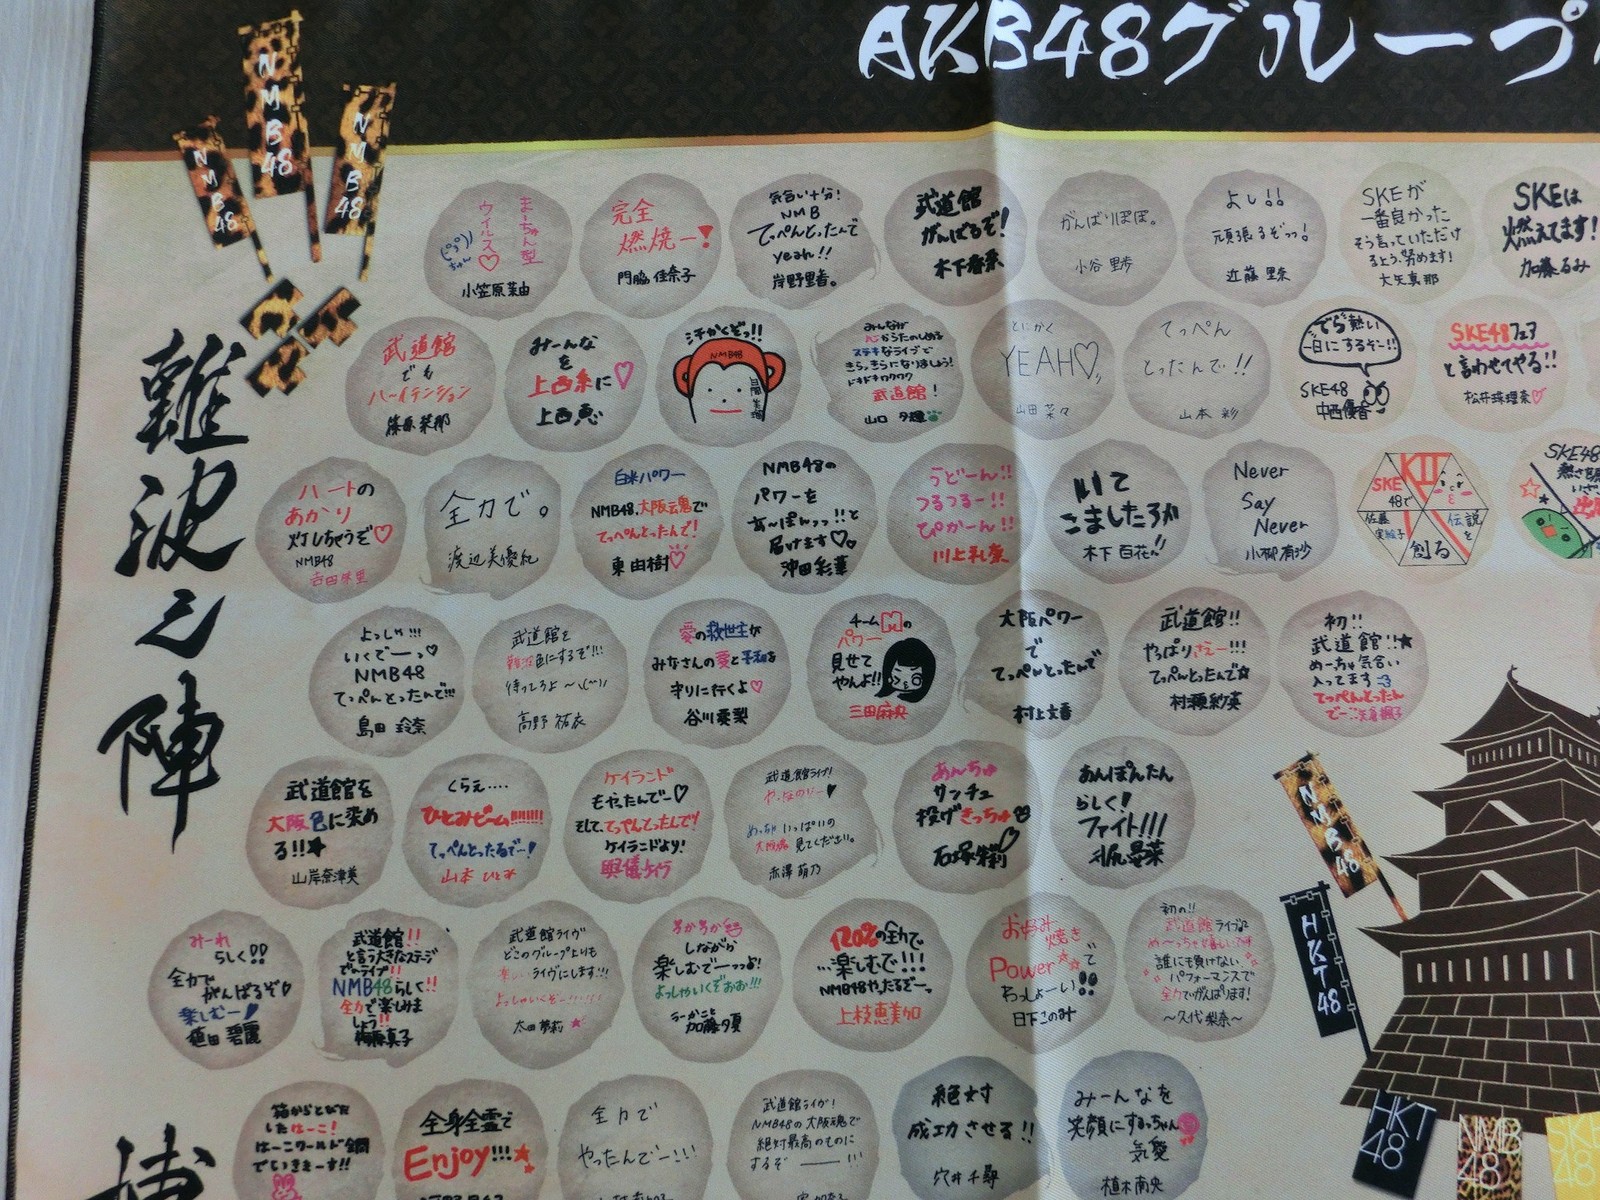 AKB48グループ
NMB48
NMB48
NMB48
難波之陣
まーちゃん型
ウイルス♡
小笠原茉由
完全
燃焼ー!
門脇佳奈子
気合い十分!
NMB
てっぺんとったんで
yeah!!
岸野里香。
武道館
がんばるぞ!
木下春奈
がんばりぽぽ。
小谷里歩
よし!!
頑張るぞっっ!
近藤里奈
SKEが
一番良かった
そう言っていただけ
るよう、努めます!
大矢真那
SKEは
燃えてます!
加藤るみ
武道館
でも
ハーイテンション
篠原栞那
みーんな
を
上西系に♡
上西恵
汗かくぞっ!!
NMB48
みんなが
心からたのしめる
ステキなライブで
きらっきらになりましょう!
ドキドキワクワク
武道館!
山口夕輝
とにかく
YEAH♡
山田菜々
てっぺん
とったんで!!
山本彩
でら熱い
一日にするぞー!!
SKE48
中西優香
SKE48フェア
と言わせてやる!!
松井珠理奈♡
ハートの
あかり
灯しちゃうぞ♡
NMB48
吉田朱里
全力で。
渡辺美優紀
白米パワー
NMB48.大阪魂で
てっぺんとったんで!
東由樹♡
NMB48の
パワーを
あ〜ぽんっっ!!と
届けます♡
沖田彩華
うどーん!!
つるつるー!!
ぴかーん!!
川上礼奈
いて
こましたろか
木下百花!!
Never
Say
Never
小柳有沙
KII
SKE
48で
佐藤
実絵子
伝説
を
創る
SKE48
よっしゃ!!!
いくでーっ♡
NMB48
てっぺんとったんで!!!
島田玲奈
武道館を
難波色にするぞ!!!
待ってろよ〜\(^^)/
高野祐衣
愛の救世主が
みなさんの愛と平和を
守りに行くよ♡
谷川愛梨
チームMの
パワー
見せて
やんよ!!
三田麻央
大阪パワー
で
てっぺんとったんで
村上文香
武道館!!
やっぱりさえー!!!
てっぺんとったんで☆
村瀬紗英
初!!
武道館!!★
めーちゃ気合い
入ってます
てっぺんとったん
でー
矢倉楓子
武道館を
大阪色に染め
る!!★
山岸奈津美
くらえ....
ひとみビーム!!!!!!!
てっぺんとったるでー!
山本ひとみ
ケイランド
もやったんでー♡
そして、てっぺんとったんで!
ケイランドより!
與儀ケイラ
武道館ライブ!
やっなのりー♥
めっちゃいっぱいの
大阪魂見てください。
赤澤萌乃
あんちゅ
サンチュ
投げきっちゅ
石塚朱莉
あんぽんたん
らしく!
ファイト!!!
川尻昌菜
NMB48
HKT48
みーれ
らしく!!
全力で
がんばるぞ♡
楽しむー!
植田碧麗
武道館!!
と言う大きなステージ
でのライブ!!
NMB48らしく!!
全力で楽しみま
しょう!!
梅原真子
武道館ライヴ
どこのグループよりも
楽しいライヴにします!!!
よっしゃいくぞー!!!!!!
太田夢莉★
ろかろか
しながら
楽しむでーっっよ!
よっしゃいくぞおお!!!
うーかこと
加藤夕夏
120%の全力で
...楽しむで!!!
NMB48やったるぞー。
上枝恵美加
お好み
焼き
Powerで
わっしょーい!!
日下このみ
初の!!
武道館ライブは
め〜っちゃ嬉しいです!!
誰にも負けない
パフォーマンスで
全力でがんばります!
〜久代梨奈〜
箱からとびだ
したはーこ!
はーこワールド全開
でいきまーす!!
全身全霊で
Enjoy!!!★
全力で
やったんでー!!!
武道館ライブ!
NMB48の大阪魂で
絶対最高のものに
するぞ―――!!!
絶対
成功させる!!
穴井千尋
みーんなを
笑顔にするっちゃん
気愛
植木南央
HKT
48
NMB
48
SKE
48